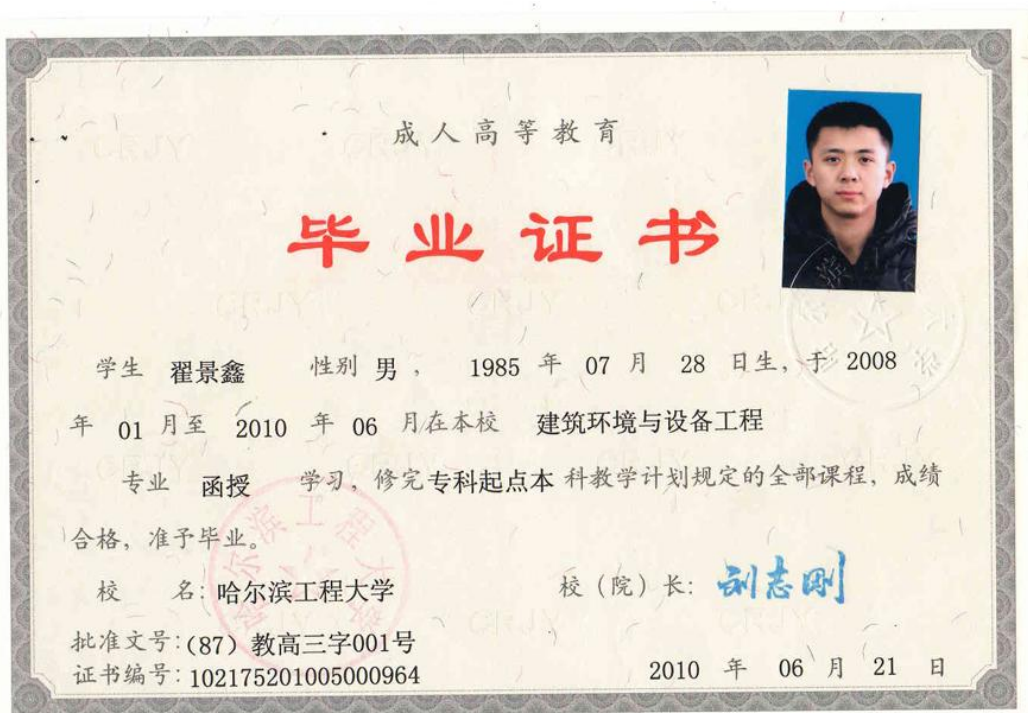 成人高等教育
毕业证书
学生 翟景鑫 性别 男, 1985 年 07 月 28 日生, 于 2008
年 01 月至 2010 年 06 月在本校 建筑环境与设备工程
专业 函授 学习, 修完专科起点本科教学计划规定的全部课程, 成绩
合格, 准予毕业。
校 名: 哈尔滨工程大学 校(院)长: 刘志刚
批准文号:(87)教高三字001号
证书编号: 102175201005000964 2010 年 06 月 21 日
哈尔滨工程大学